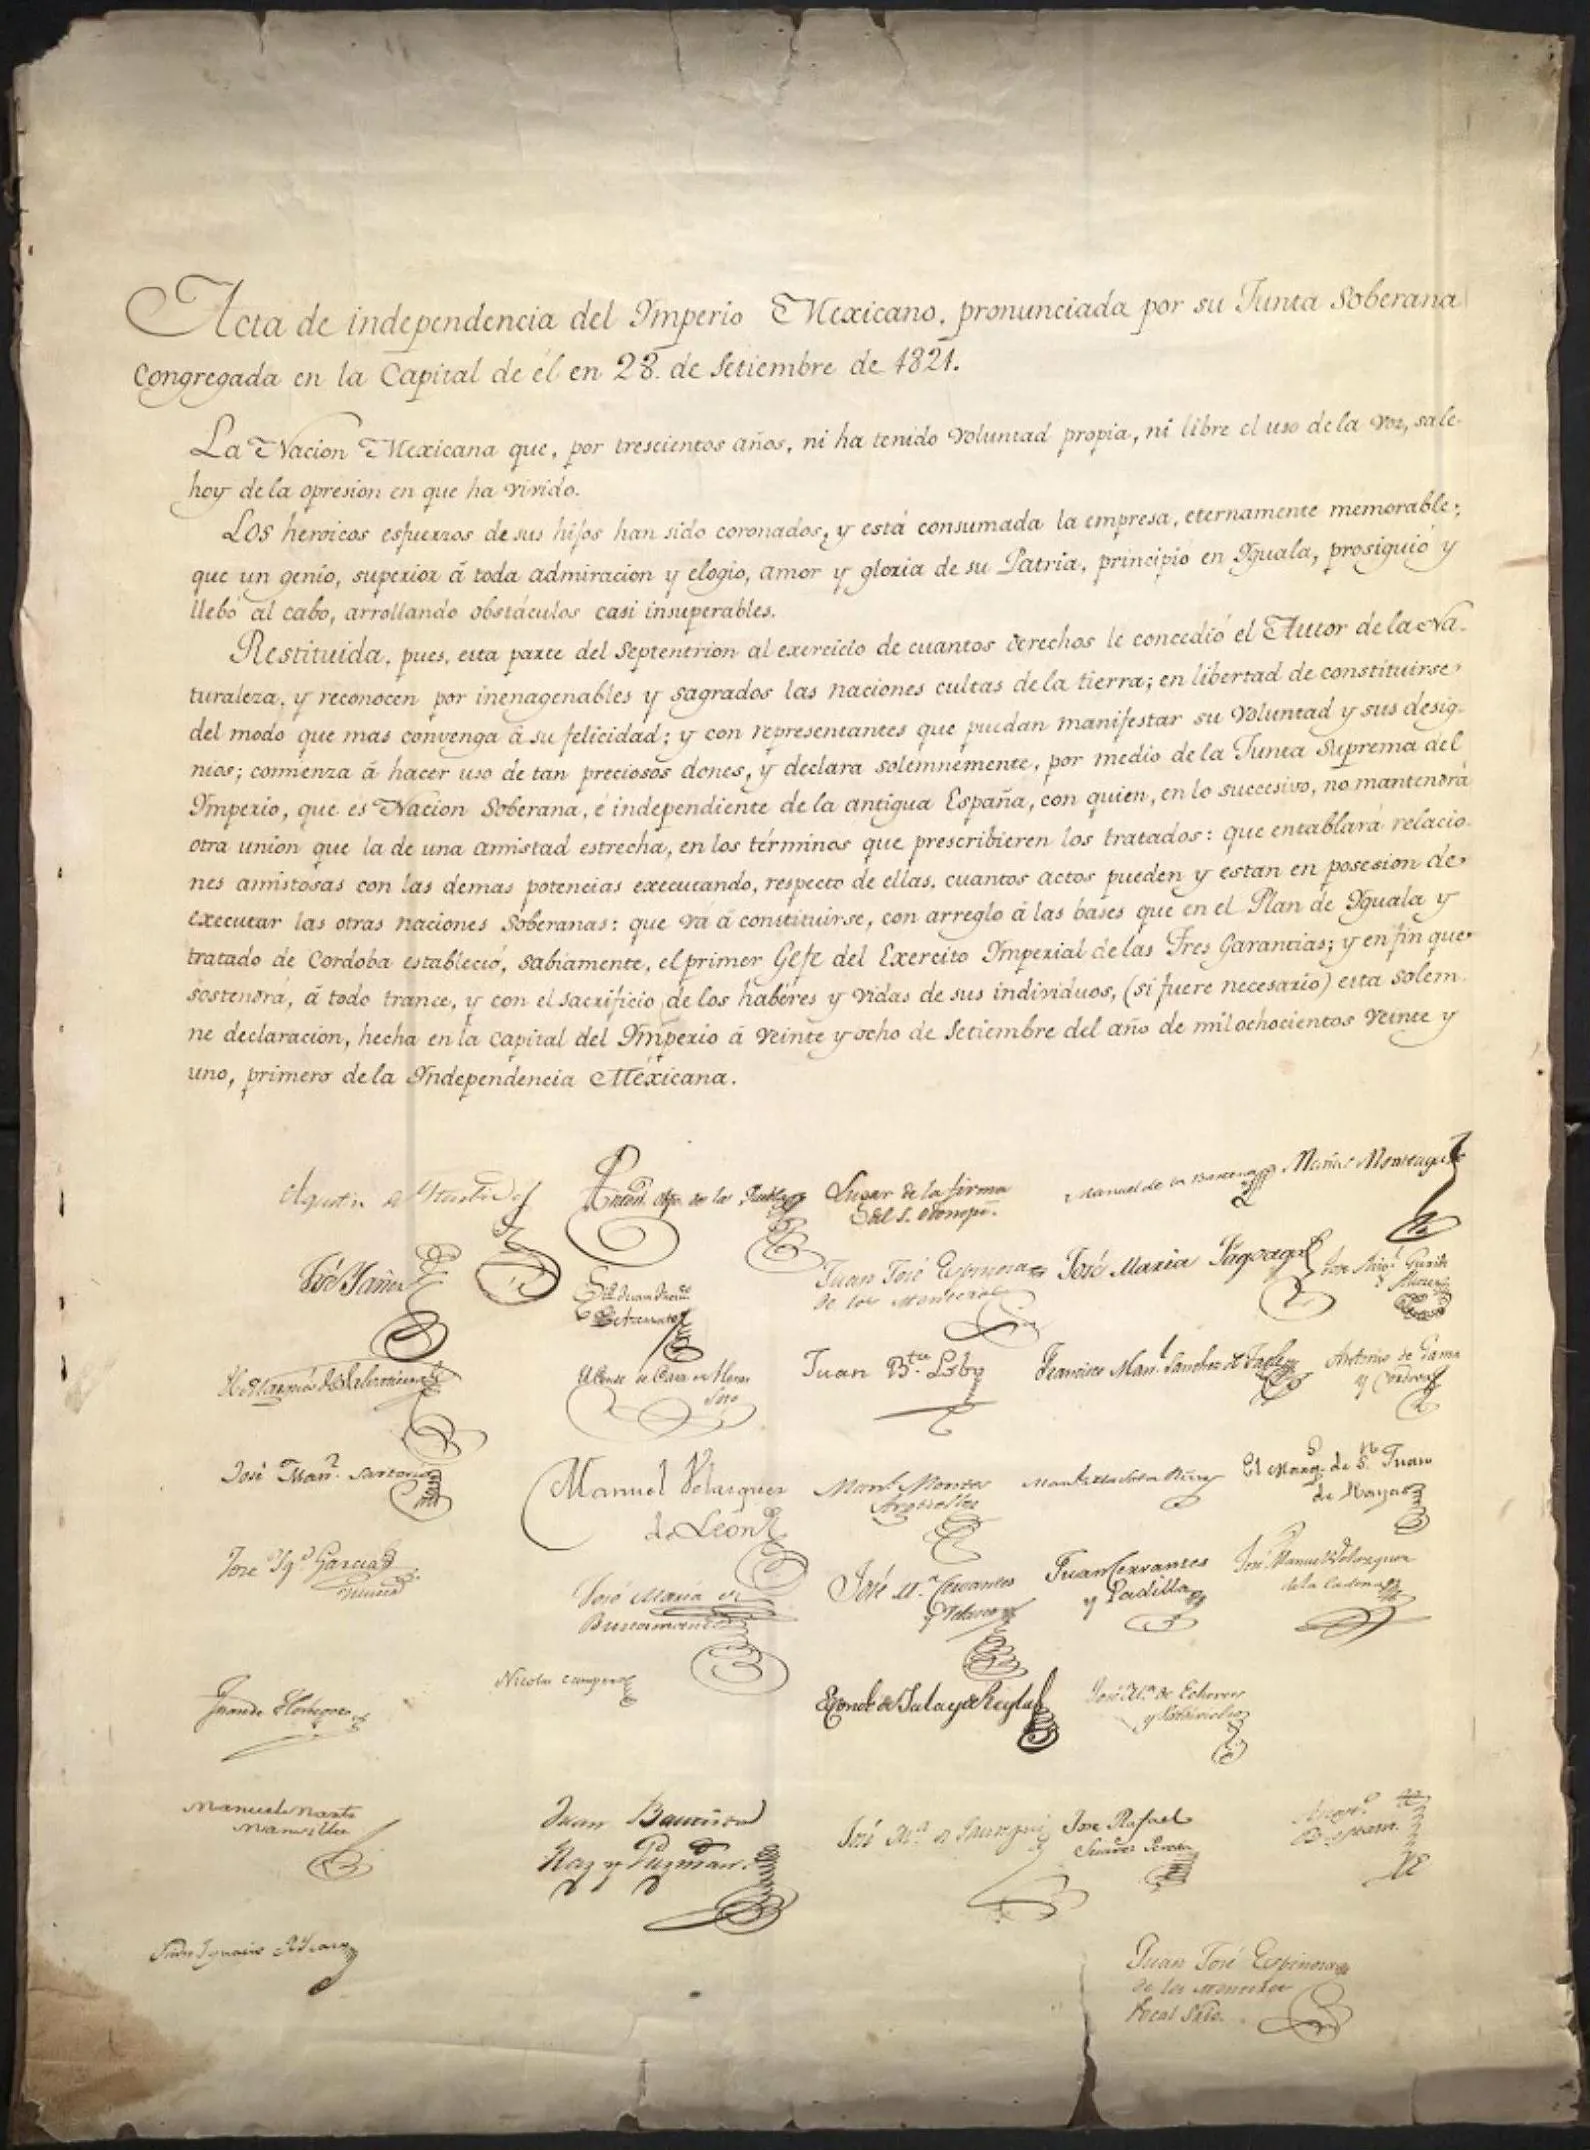 Acta de independencia del Ymperio Mexicano, pronunciada por su Junta Soberana
Congregada en la Capital de él en 28. de Setiembre de 1821.
La Nacion Mexicana que, por trescientos años, ni ha tenido voluntad propia, ni libre el uso de la voz, sale
hoy de la opresion en que ha vivido.
Los heroicos esfuerzos de sus hijos han sido coronados, y está consumada la empresa, eternamente memorable,
que un genio, superior á toda admiracion y elogio, amor y gloria de su Patria, principió en Yguala, prosiguió y
llebó al cabo, arrollando obstáculos casi insuperables.
Restituida, pues, esta parte del Septentrion al exercicio de cuantos derechos le concedió el Autor de la Na-
turaleza, y reconocen por inenagenables y sagrados las naciones cultas de la tierra; en libertad de constituirse
del modo que mas convenga á su felicidad; y con representantes que puedan manifestar su voluntad y sus desig-
nios; comienza á hacer uso de tan preciosos dones, y declara solemnemente, por medio de la Junta Suprema del
Ymperio, que es Nacion Soberana, é independiente de la antigua España, con quien, en lo succesivo, no mantendrá
otra union que la de una amistad estrecha, en los términos que prescribieren los tratados: que entablará relacio-
nes amistosas con las demas potencias executando, respecto de ellas, cuantos actos pueden y estan en posesion de
executar las otras naciones Soberanas: que vá á constituirse, con arreglo á las bases que en el Plan de Yguala y
tratado de Cordoba estableció, sabiamente, el primer Gefe del Exercito Ymperial de las Tres Garantias; y en fin que
sostendrá, á todo trance, y con el sacrificio de los habéres y vidas de sus individuos, (si fuere necesario) esta solem-
ne declaracion, hecha en la capital del Ymperio á veinte y ocho de Setiembre del año de mil ochocientos veinte y
uno, primero de la Yndependencia Méxicana.
Agustin de Yturbide
Lugar de la firma
del S. Odonojú.
Manuel de la Barcena
Matias Monteagudo
José Yañez
Juan José Espinosa
de los Monteros
José Maria Fagoaga
Juan B.ta Lobo
Francisco Man.l Sanchez de Tagle
Antonio de Gama
y Cordova
José Man.l Sartorio
Manuel Velazquez
de Leon
Man.l Montes
Arguelles
El Marq.s de S.n Juan
de Rayas
José Yg.o García
José María de
Bustamante
José M.a Cervantes
y Velasco
Juan Cervantes
y Padilla
José Manuel Velazquez
de la Cadena
Juan de Horbegoso
Nicolas Campero
El Conde de Jala y de Regla
José M.a de Echevers
y Valdivielso
Manuel Martz
Mansilla
Juan Bautista
Raz y Guzman.
José M.a de Jauregui
José Rafael
Suarez Pereda
Juan José Espinosa
de los Monteros
Vocal Srio.